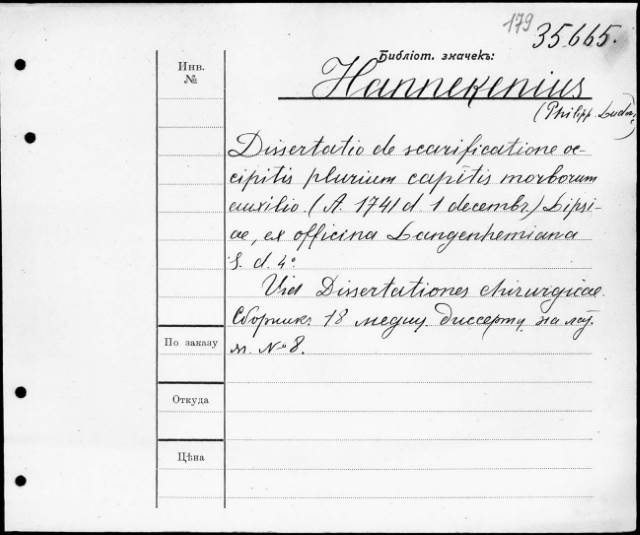 179 35665.
Инв.
№
Библіот. значекъ:
Hannekenius
(Philipp Ludov.)
Dissertatio de scarificatione oc-
cipitis plurium capitis morborum
auxilio. (A. 1741 d. 1 decembr.) Lipsi-
ae, ex officina Langenhemiana
s. d. 4°
Vid Dissertationes chirurgicae.
Сборникъ 18 медиц. диссерт. на лат.
По заказу
яз. № 8.
Откуда
Цѣна